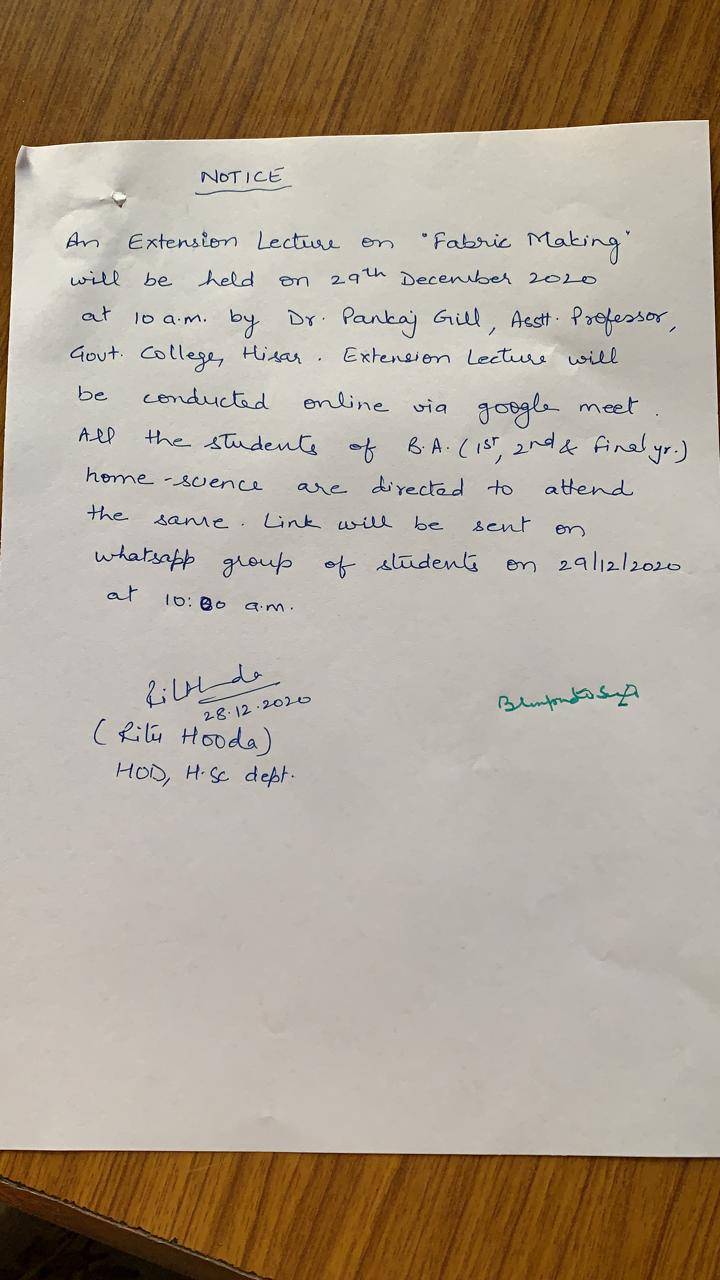 NOTICE
An Extension Lecture on "Fabric Making"
will be held on 29th December 2020
at 10 a.m. by Dr. Pankaj Gill, Asstt. Professor,
Govt. College, Hisar. Extension Lecture will
be conducted online via google meet.
All the students of B.A. (1st, 2nd & final yr.)
home-science are directed to attend
the same. Link will be sent on
whatsapp group of students on 29/12/2020
at 10:00 a.m.
28.12.2020
(Ritu Hooda)
HOD, H.Sc dept.